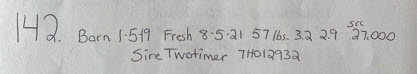 142. Born 1-5-19 Fresh 8-5-21 57 lbs. 3.2 2.9 scc 27,000
Sire Twotimer 7HO12932